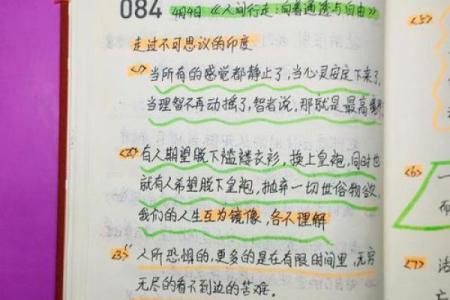 084 4月4日《人间行走:向着通透与自由》
走过不可思议的印度
<1> 当所有的感觉都静止了,当心灵安定下来了,
当理智不再动摇了,智者说,那就是最高
<2> 有人期望脱下褴褛衣衫,换上皇袍,同时也
就有人希望脱下皇袍,抛弃一切世俗物欲,
我们的人生互为镜像,各不理解
<3> 人所恐惧的,更多的是在有限时间里,无穷
无尽的看不到边的苦难.
<5>
<6> 一
而
<7> 法